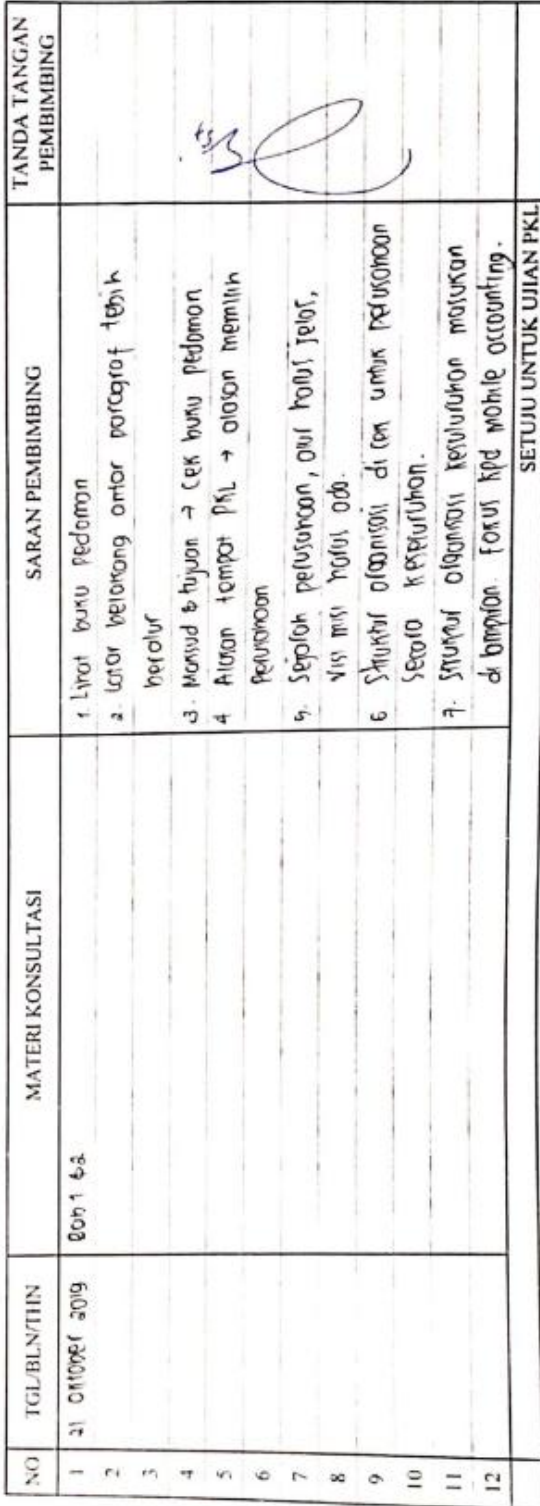 NO TGL/BLN/THN MATERI KONSULTASI SARAN PEMBIMBING TANDA TANGAN PEMBIMBING
1 21 Oktober 2019 Bab 1 & 2 1. Lihat buku pedoman
2 2. Latar belakang antar paragraf lebih
3 beralur
4 3. Maksud & tujuan → cek buku pedoman
5 4 Alasan tempat PKL → alasan memilih
6 perusahaan
7 5. Sejarah perusahaan, alur harus jelas,
8 visi misi harus ada.
9 6 Struktur organisasi di cek untuk perusahaan
10 secara keseluruhan.
11 7. Struktur organisasi keseluruhan masukan
12 di lampiran. Fokus kpd mobile accounting.
SETUJU UNTUK UJIAN PKL